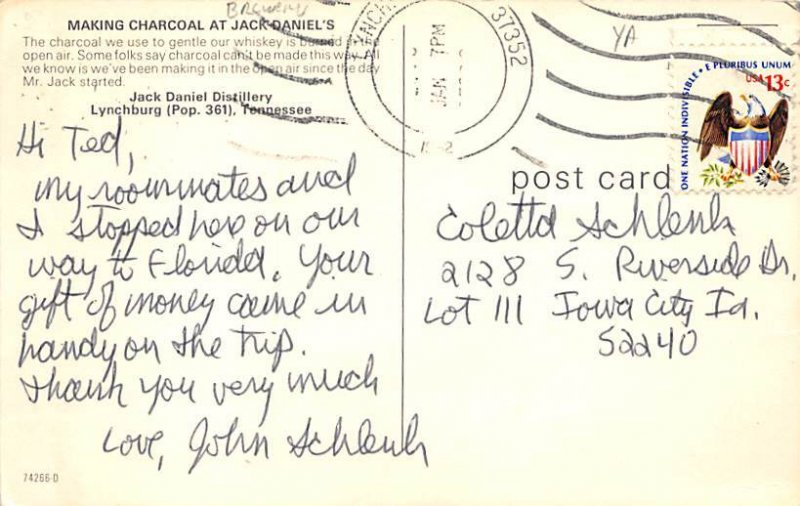 BREWERY
MAKING CHARCOAL AT JACK DANIEL'S
The charcoal we use to gentle our whiskey is burned in the
open air. Some folks say charcoal can't be made this way. All
we know is we've been making it in the open air since the day
Mr. Jack started.
Jack Daniel Distillery
Lynchburg (Pop. 361), Tennessee
Hi Ted,
my roommates and
I stopped here on our
way to Florida. Your
gift of money came in
handy on the trip.
Thank you very much
Love, John Schlenk
74266-D
LYNCH 37352
JAN 7PM
YA
E PLURIBUS UNUM
USA 13c
ONE NATION INDIVISIBLE
post card
Coletta Schlenk
2128 S. Riverside Dr.
Lot 111 Iowa City Ia.
52240